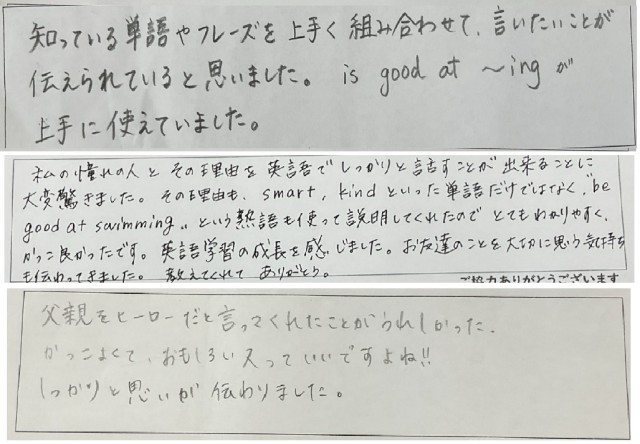 知っている単語やフレーズを上手く組み合わせて、言いたいことが
伝えられていると思いました。 is good at ～ing が
上手に使えていました。
私の憧れの人と その理由を 英語でしっかりと話すことが出来ることに
大変驚きました。その理由も、smart, kind といった単語だけではなく、"be
good at swimming" という熟語も使って説明してくれたので とてもわかりやすく、
かっこ良かったです。英語学習の成長を感じました。お友達のことを大切に思う気持ち
も伝わってきました。 教えてくれて ありがとう。
ご協力ありがとうございます
父親をヒーローだと言ってくれたことがうれしかった。
かっこよくて、おもしろい人っていいですよね!!
しっかりと思いが伝わりました。